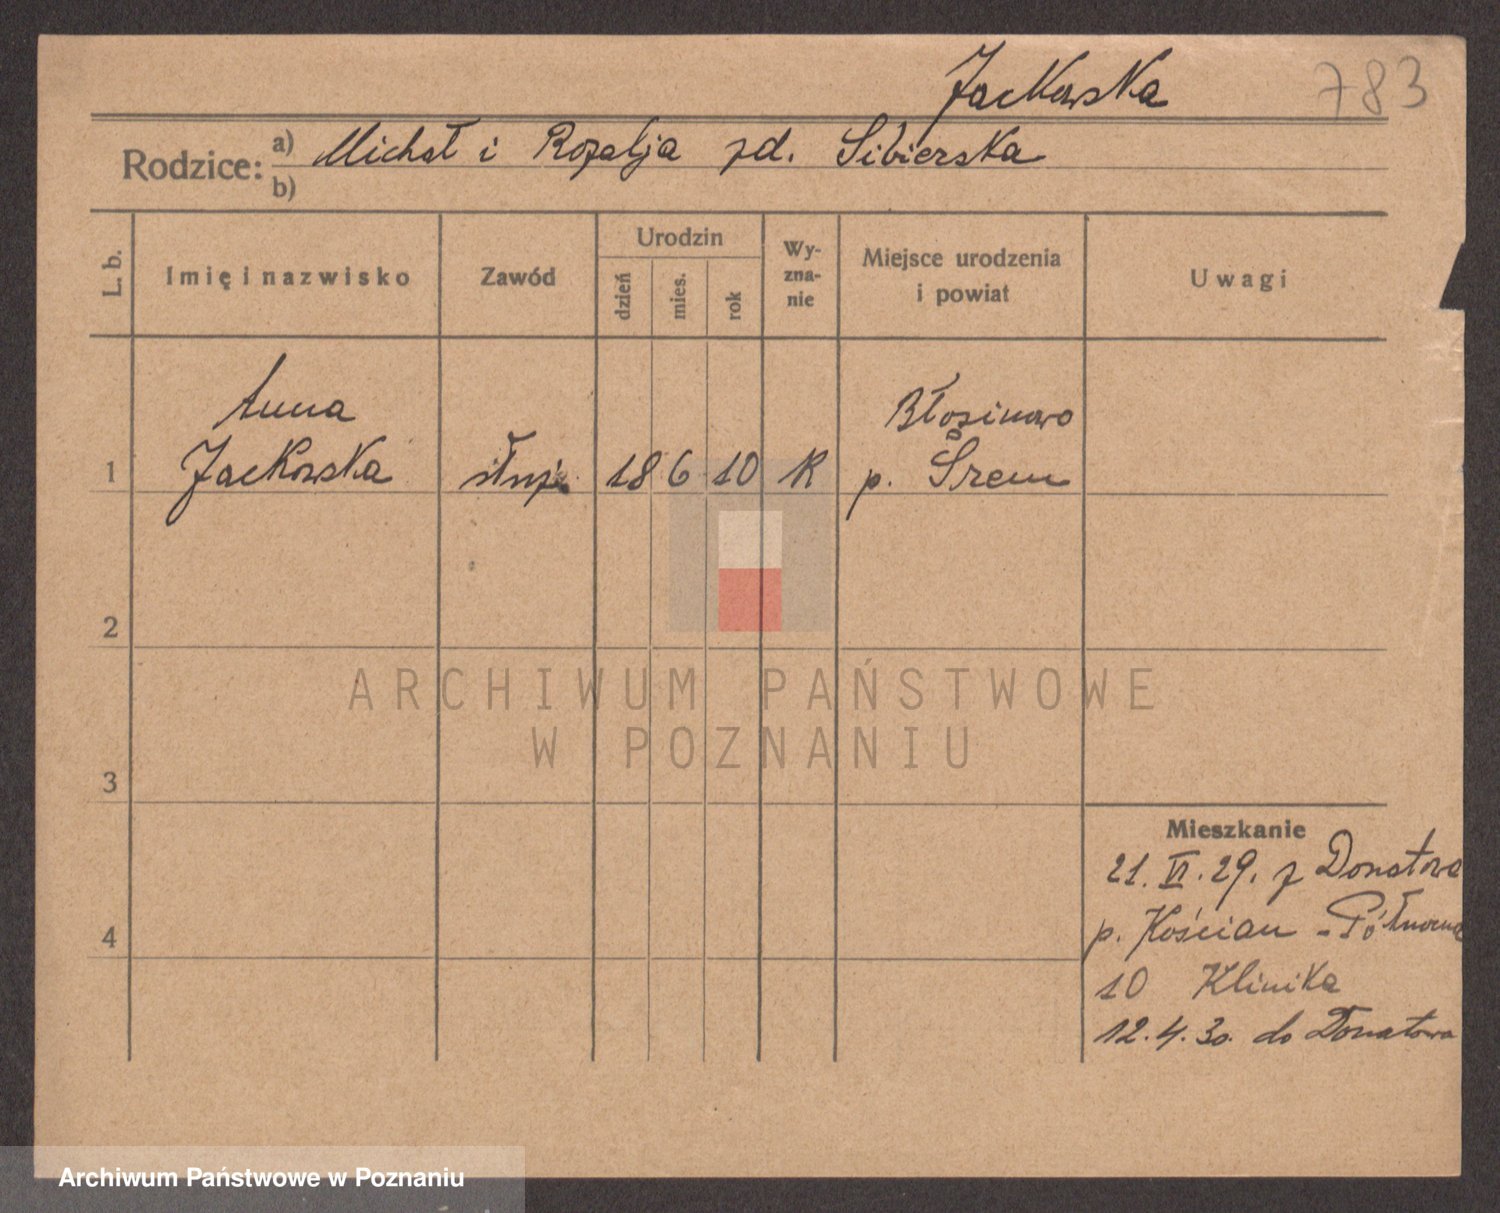 Jackowska 783
Rodzice: a) Michał i Rozalja zd. Sibierska
b)
L. b. Imię i nazwisko Zawód Urodzin dzień mies. rok Wy-zna-nie Miejsce urodzenia i powiat Uwagi
Anna Błosinowo
1 Jackowska służ. 18 6 10 K p. Śrem
2
ARCHIWUM PAŃSTWOWE
W POZNANIU
3
Mieszkanie
21. VI. 29. z Donatowa
4 p. Kościan - Północna
10 Klinika
12.4.30. do Donatowa
Archiwum Państwowe w Poznaniu